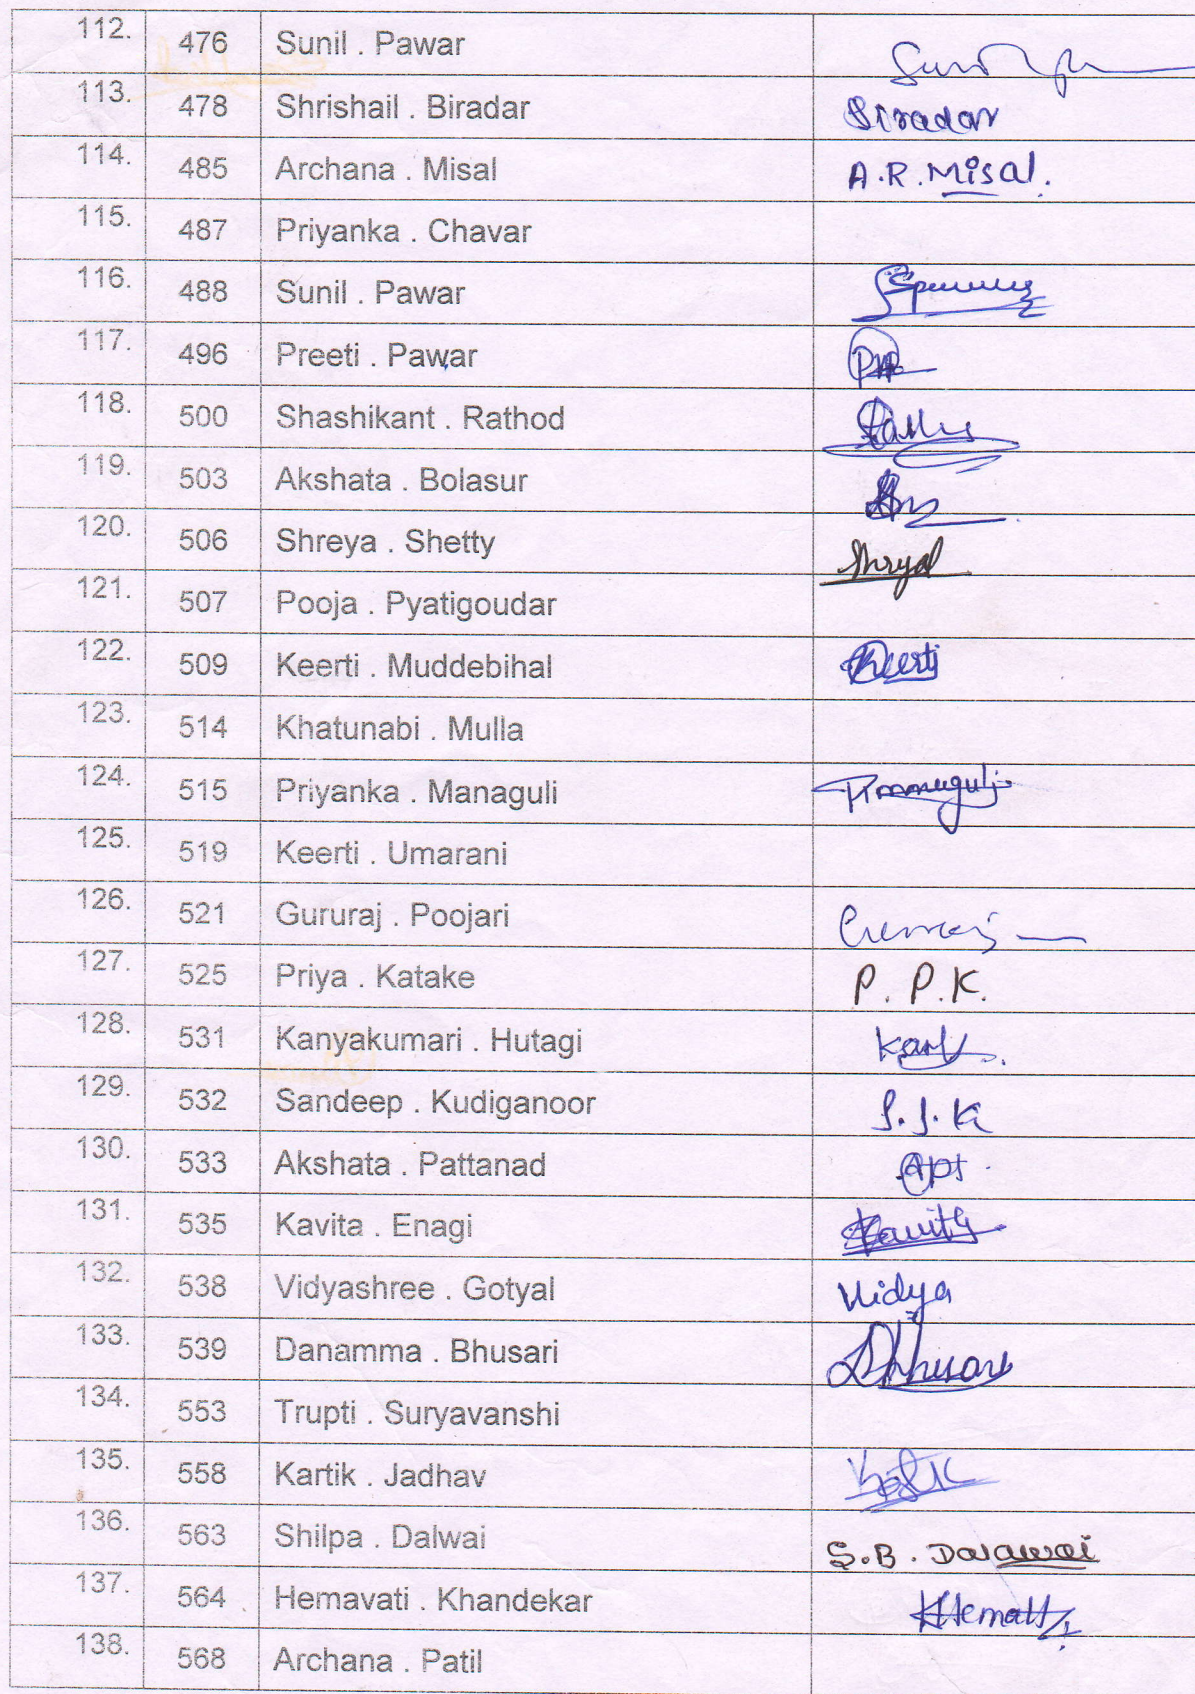 112. 476 Sunil . Pawar
113. 478 Shrishail . Biradar Biradar
114. 485 Archana . Misal A.R.Misal.
115. 487 Priyanka . Chavar
116. 488 Sunil . Pawar
117. 496 Preeti . Pawar
118. 500 Shashikant . Rathod
119. 503 Akshata . Bolasur
120. 506 Shreya . Shetty
121. 507 Pooja . Pyatigoudar
122. 509 Keerti . Muddebihal Keerti
123. 514 Khatunabi . Mulla
124. 515 Priyanka . Managuli
125. 519 Keerti . Umarani
126. 521 Gururaj . Poojari
127. 525 Priya . Katake P. P.K.
128. 531 Kanyakumari . Hutagi
129. 532 Sandeep . Kudiganoor S.J.K
130. 533 Akshata . Pattanad
131. 535 Kavita . Enagi
132. 538 Vidyashree . Gotyal Vidya
133. 539 Danamma . Bhusari
134. 553 Trupti . Suryavanshi
135. 558 Kartik . Jadhav
136. 563 Shilpa . Dalwai S.B. Dalawai
137. 564 Hemavati . Khandekar
138. 568 Archana . Patil